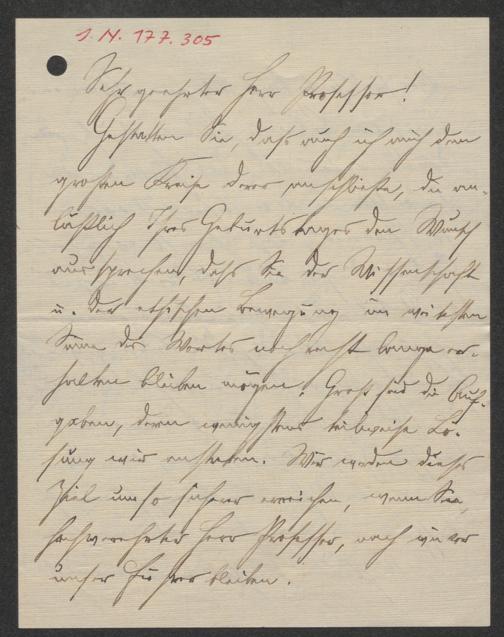 J. N. 177.305
Sehr geehrter Herr Professor!
Gestatten Sie, daß auch ich mich dem
großen Kreise derer anschließe, die an-
läßlich Ihres Geburtstages den Wunsch
aussprechen, daß Sie der Wissenschaft
u. der ethischen Bewegung im weitesten
Sinne des Wortes noch recht lange er-
halten bleiben mögen. Groß sind die Auf-
gaben, deren wenigstens teilweise Lö-
sung wir anstreben. Wir werden dieses
Ziel um so sicherer erreichen, wenn Sie,
hochverehrter Herr Professor, nach wie vor
unser Führer bleiben.